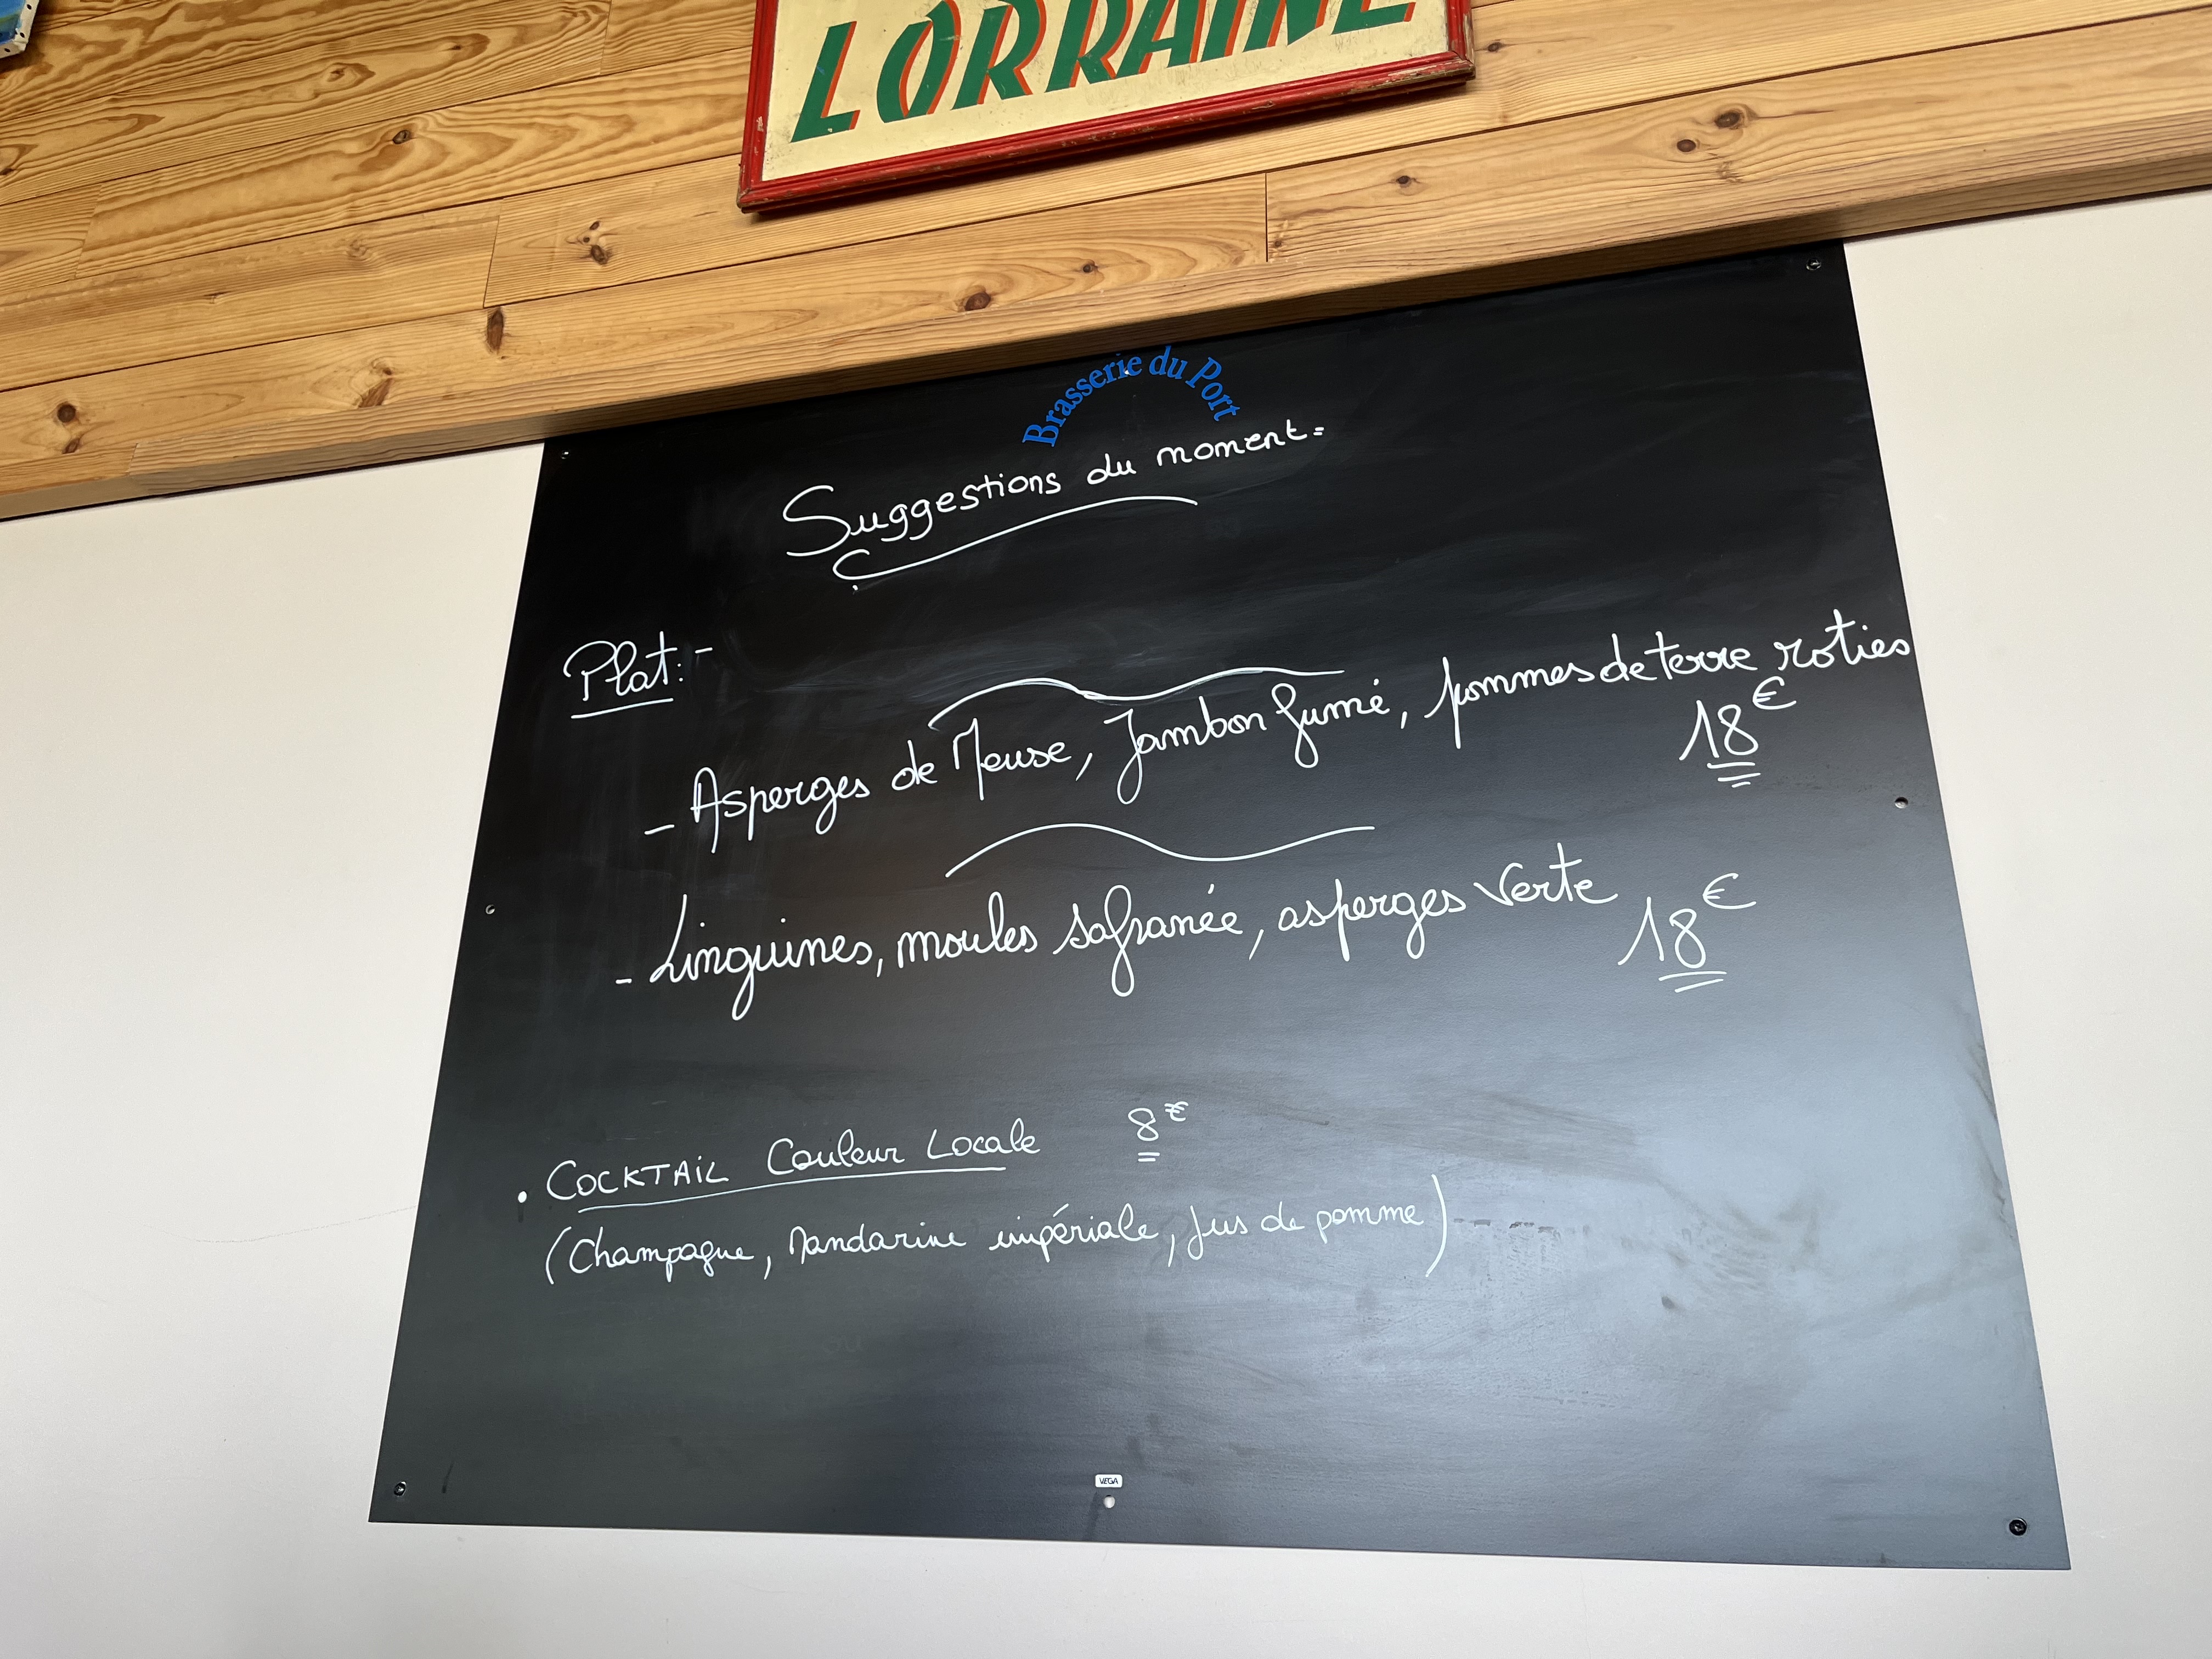 LORRAINE
Brasserie du Port
Suggestions du moment=
Plat:-
- Asperges de Meuse, Jambon fumé, pommes de terre roties
18€
- Linguines, moules safranée, asperges verte 18€
• COCKTAIL Couleur Locale 8€
(Champagne, Mandarine impériale, jus de pomme)
VEGA